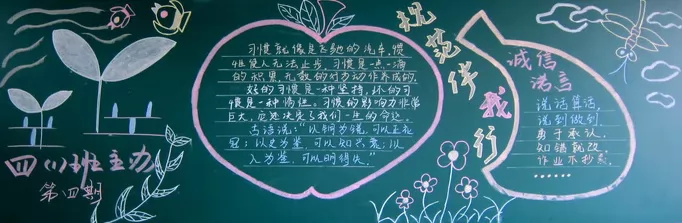 四(1)班主办
第四期
习惯就像是飞驰的汽车,惯
性使人无法止步。习惯是一点一滴
的积累,无数的行为动作养成的。
好的习惯是一种坚持,坏的习
惯是一种惰性。习惯的影响力非常
巨大,
我们一生的命运。
古语说:“以铜为镜,可以正衣
冠;以史为鉴,可以知兴衰;以
人为鉴,可以明得失。”
规范伴我行
诚信
诺言
说话算话,
说到做到,
勇于承认,
知错就改,
作业不抄袭,
……